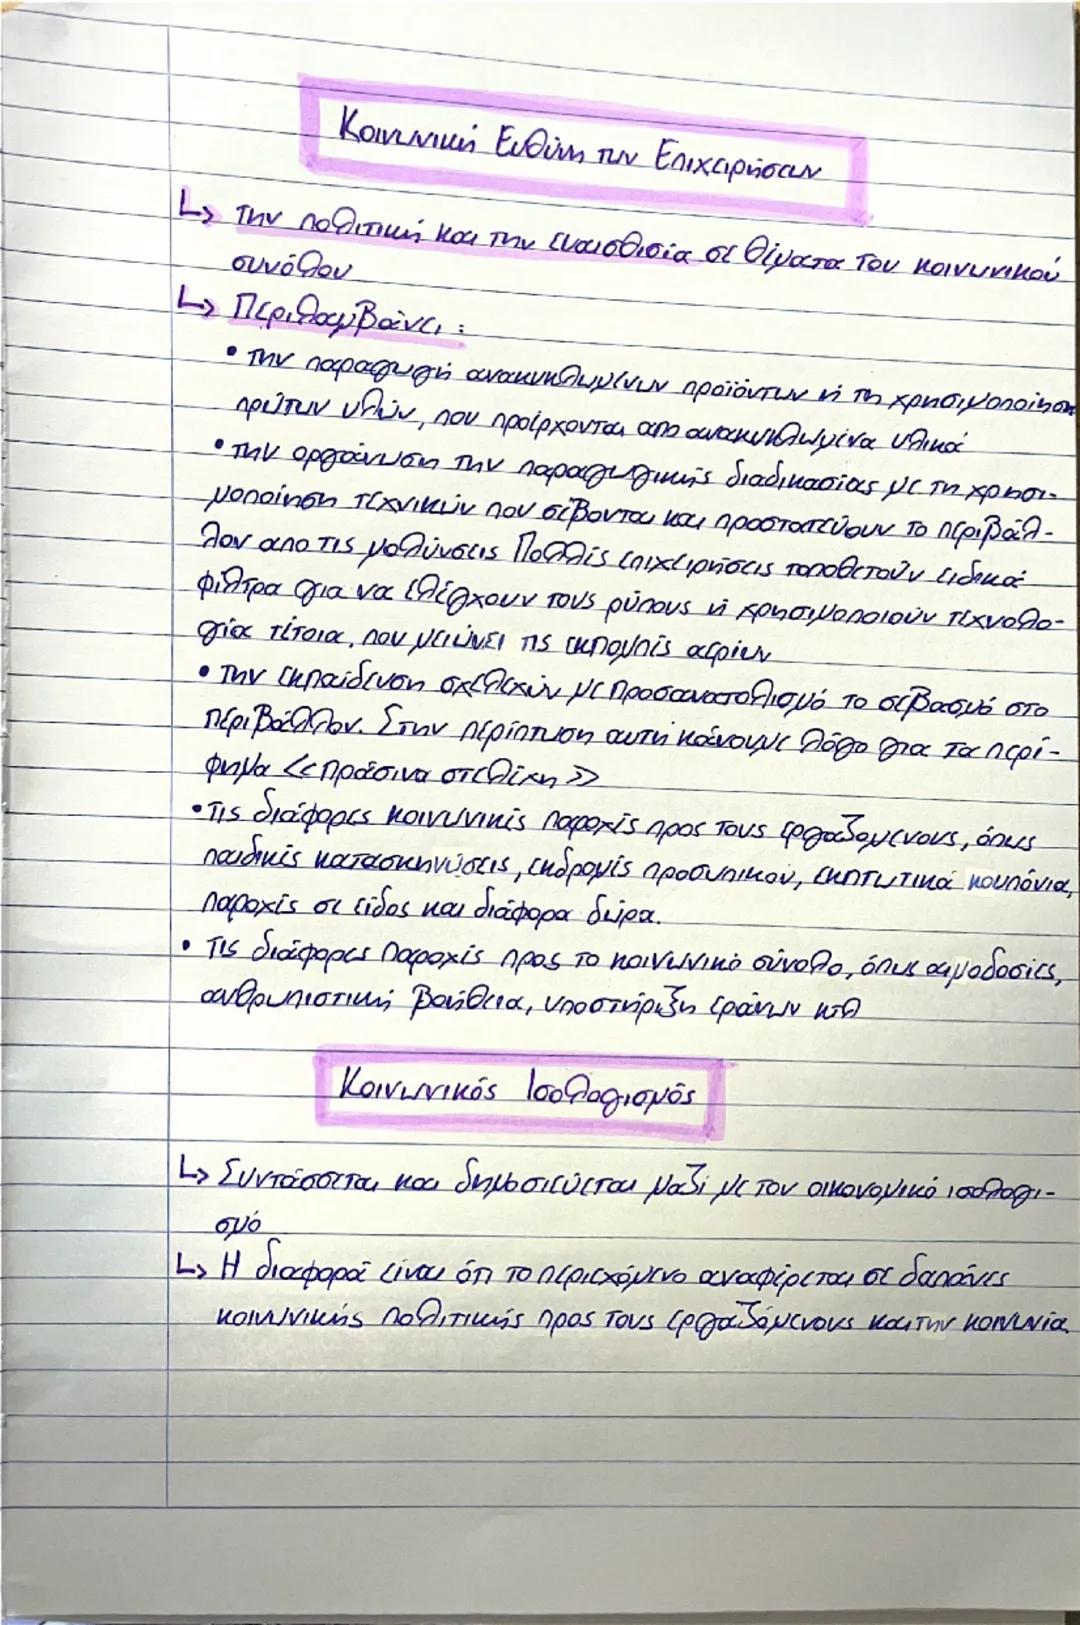 Κοινωνική Ευθύνη των Επιχειρήσεων
↳ την πολιτική και την ευαισθισία σε θέματα του κοινωνικού
συνόλου
↳ Περιλαμβάνει :
• την παραγωγή ανακυκλωμένων προϊόντων ή τη χρησιμοποίηση
πρώτων υλών, που προέρχονται απο ανακυκλωμένα υλικά
• την οργάνωση την παραγωγικής διαδικασίας με τη χρησι-
μοποίηση τεχνικών που σέβονται και προστατεύουν το περιβάλ-
λον απο τις μολύνσεις Πολλές επιχειρήσεις τοποθετούν ειδικά
φίλτρα για να ελέγχουν τους ρύπους ή χρησιμοποιούν τεχνολο-
γία τέτοια, που μειώνει τις εκπομπές αερίων
• την εκπαίδευση στελεχών με προσανατολισμό το σεβασμό στο
περιβάλλον. Στην περίπτωση αυτή κάνουμε λόγο για τα περί-
φημα << πράσινα στελέχη >>
• Τις διάφορες κοινωνικές παροχές προς τους εργαζομένους, όπως
παιδικές κατασκηνώσεις, εκδρομές προσωπικού, εκπτωτικά κουπόνια,
παροχές σε είδος και διάφορα δώρα.
• Τις διάφορες παροχές προς το κοινωνικό σύνολο, όπως αιμοδοσίες,
ανθρωπιστική βοήθεια, υποστήριξη εράνων κτλ
Κοινωνικός Ισολογισμός
↳ Συντάσσεται και δημοσιεύεται μαζί με τον οικονομικό ισολογι-
σμό
↳ Η διαφορά είναι ότι το περιεχόμενο αναφέρεται σε δαπάνες
κοινωνικής πολιτικής προς τους εργαζόμενους και την κοινωνία